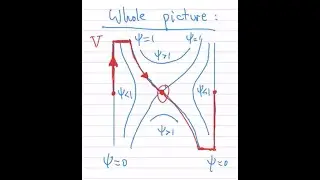 Whole picture :
V ψ=1 ψ=1
ψ>1
ψ<1 ψ<1
ψ>1
ψ=0 ψ=0